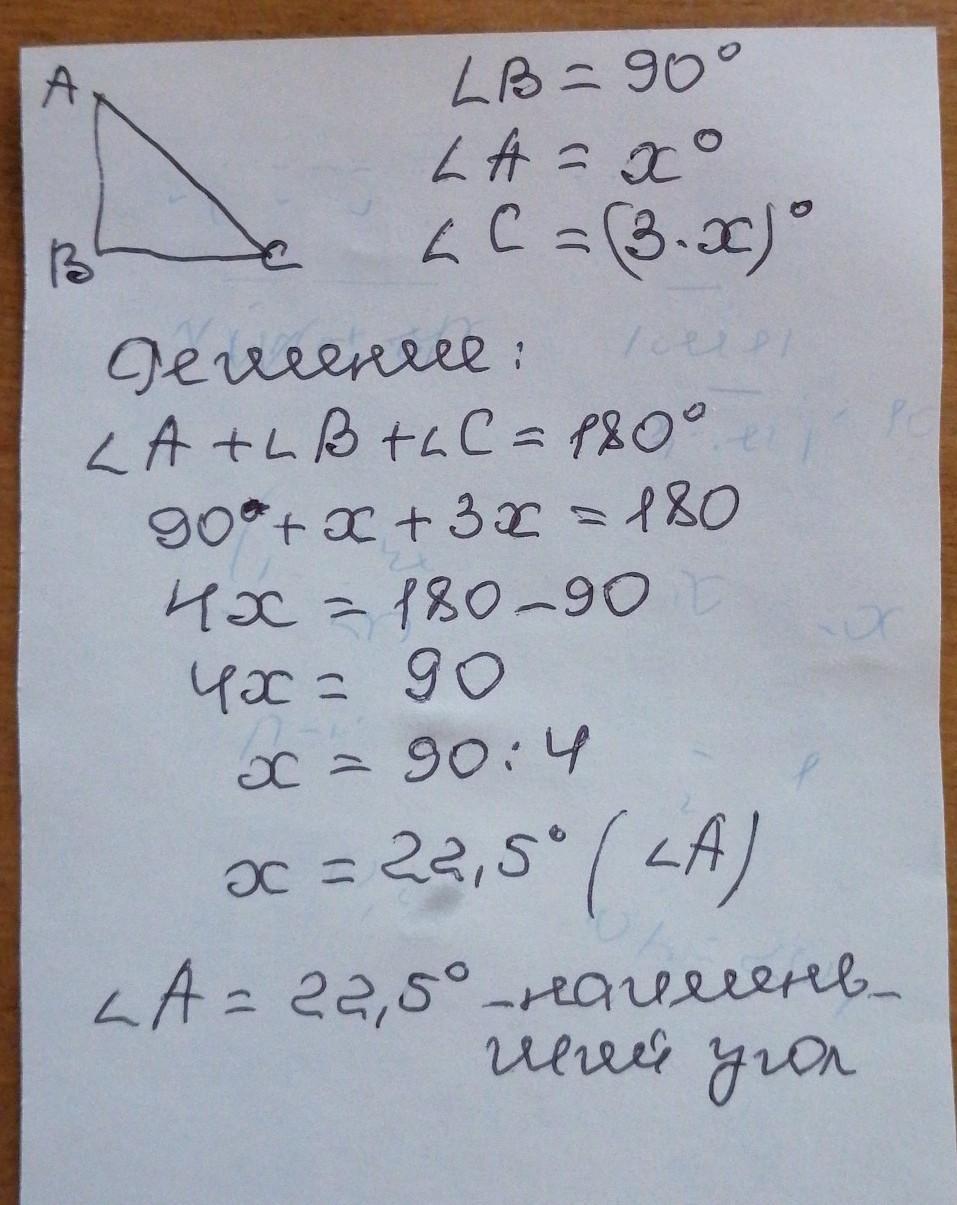 A
B
C
∠B = 90°
∠A = x°
∠C = (3·x)°
Решение:
∠A + ∠B + ∠C = 180°
90° + x + 3x = 180
4x = 180 – 90
4x = 90
x = 90 : 4
x = 22,5° (∠A)
∠A = 22,5° – наимень-
ший угол